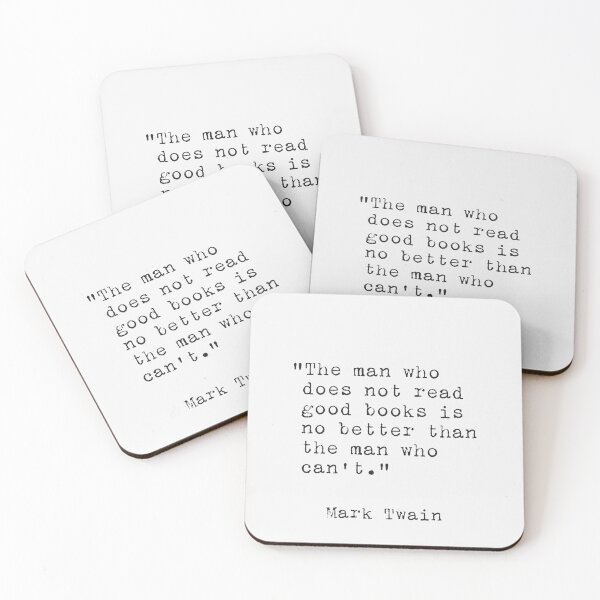 "The man who
does not read
good books is
than
"The man who
does not read
good books is
no better than
the man who
can't."
"The man who
does not read
good books is
no better than
the man who
can't."
Mark
"The man who
does not read
good books is
no better than
the man who
can't."
Mark Twain